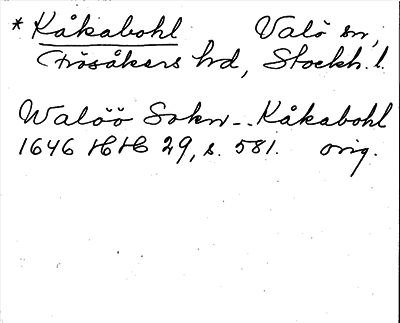 * Kåkabohl Valö sn,
Frösåkers hd, Stockh. l.
Walöö Sokn - - Kåkabohl
1646 HH 29, s. 581. orig.